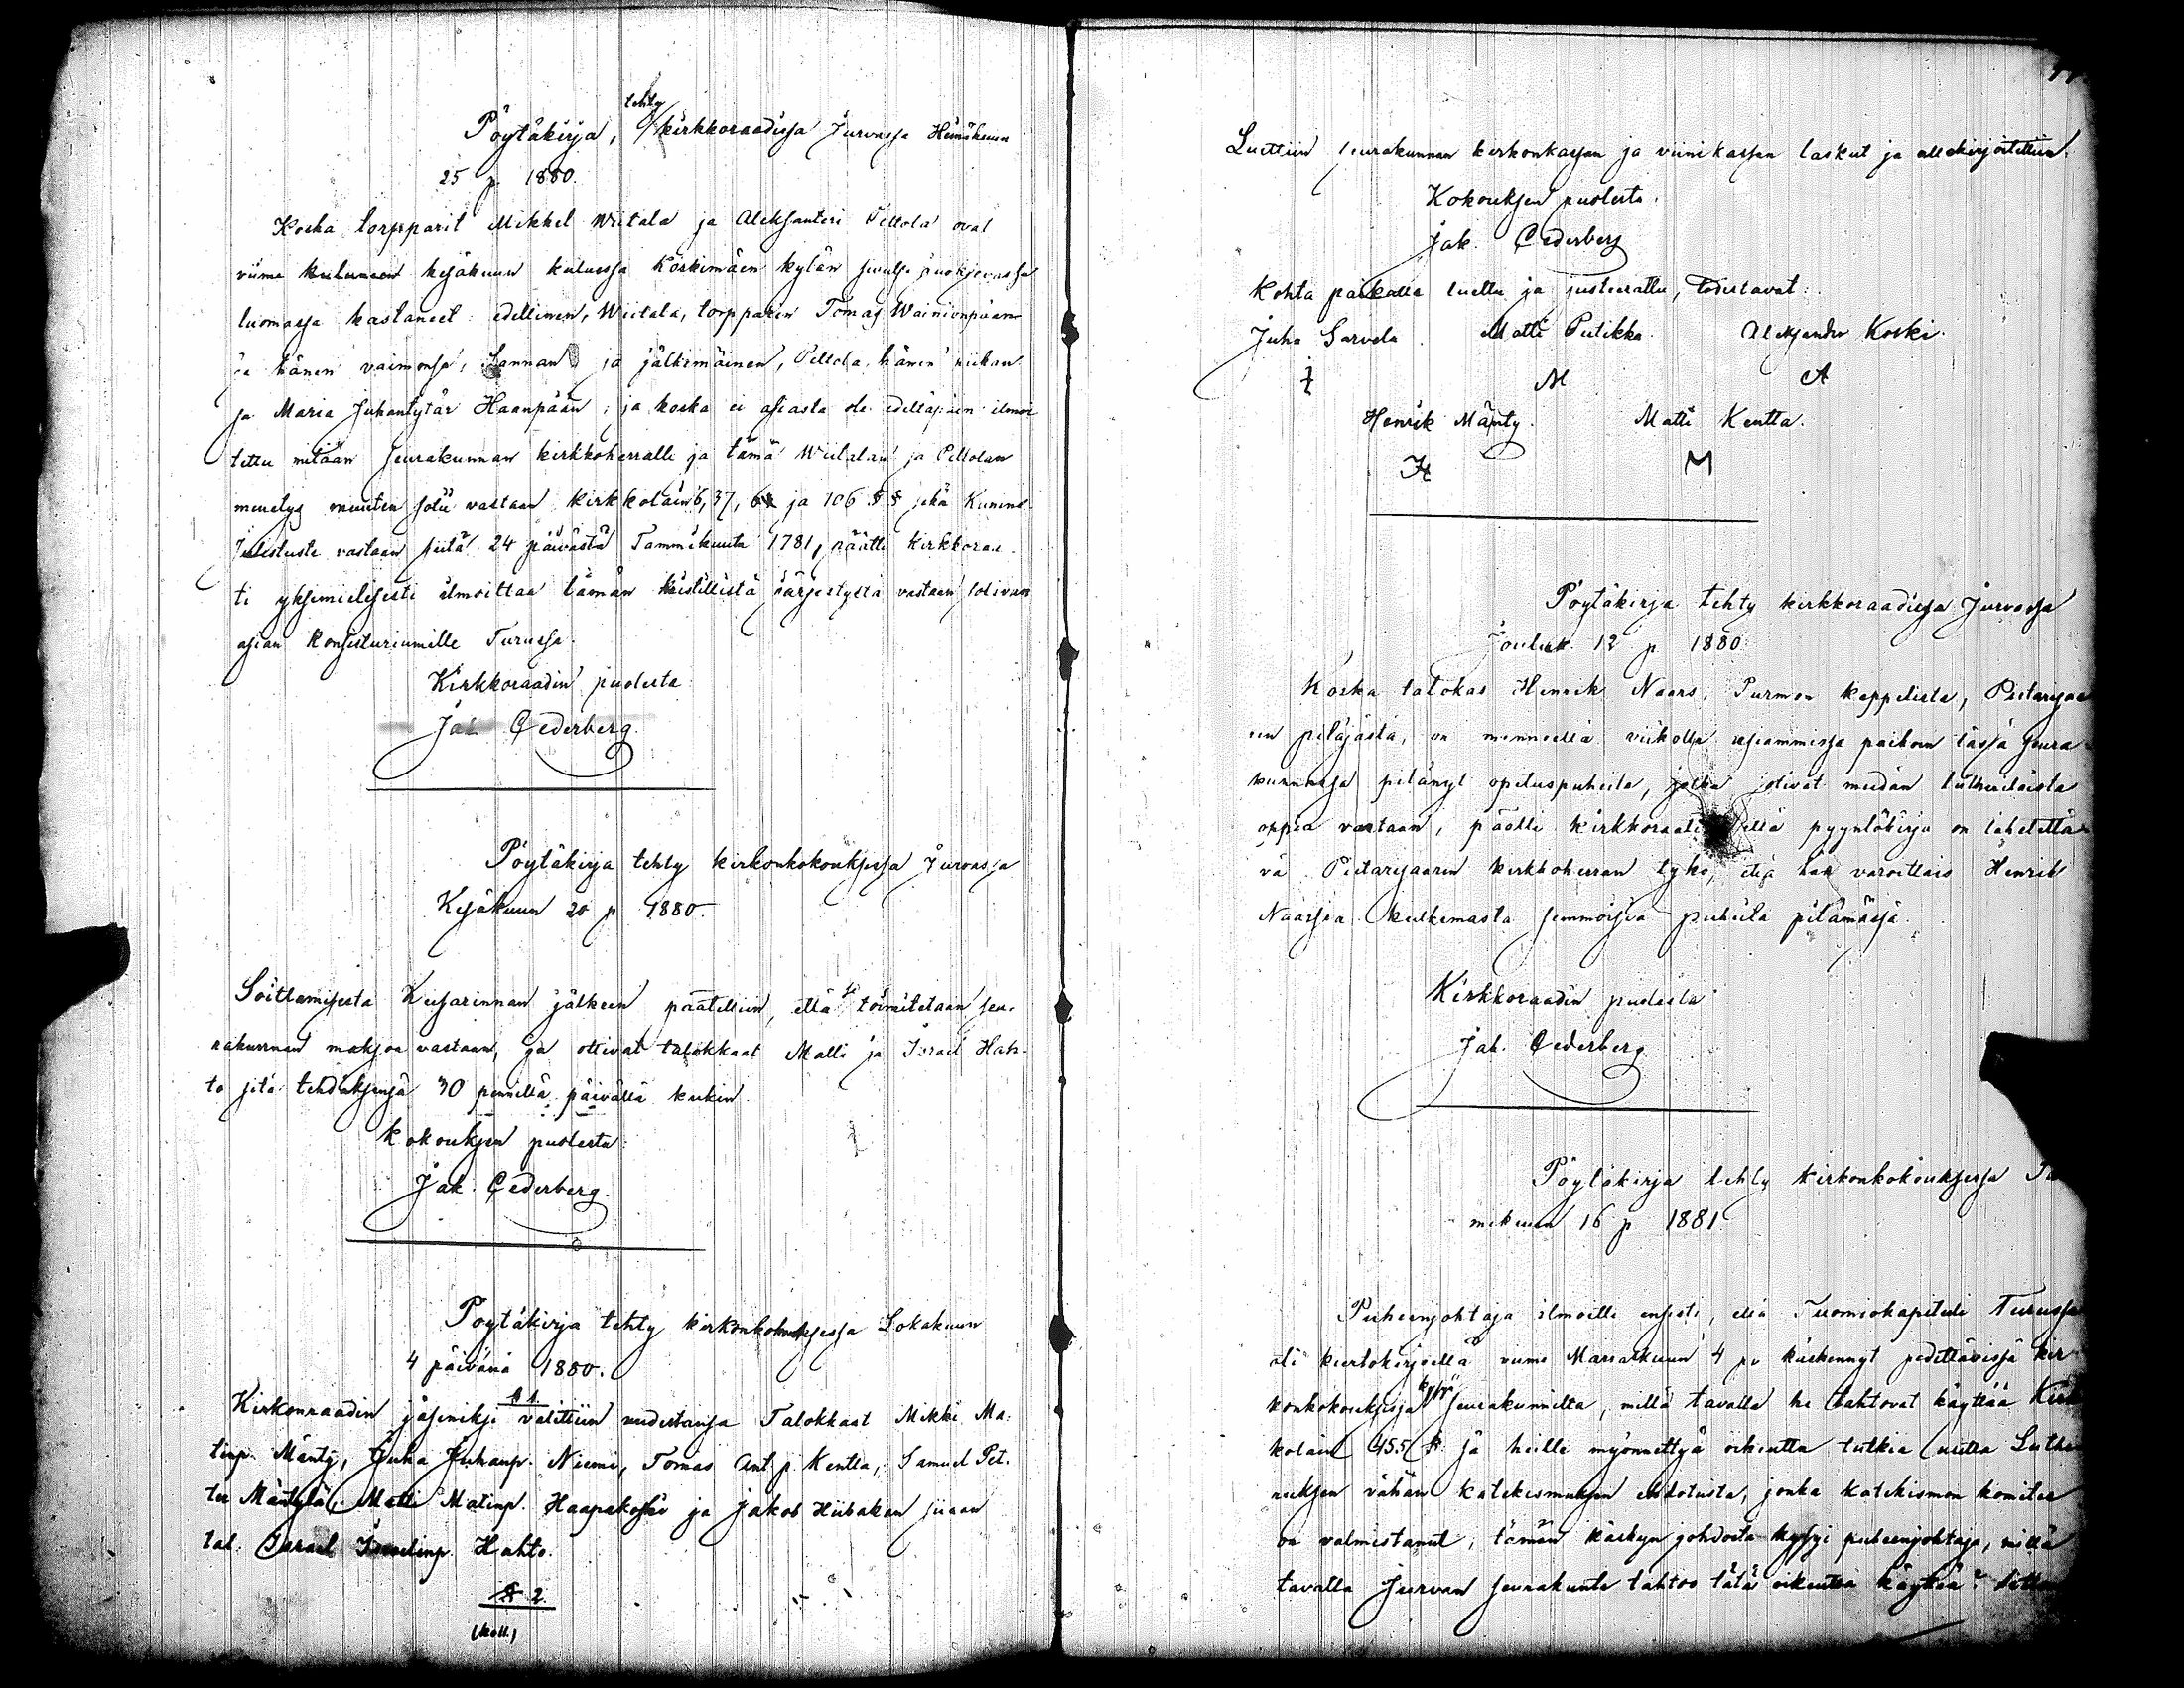 tehty
Pöytäkirja, kirkkoraadissa Jurvassa Heinäkuun
25 p 1880.
Koska torpparit Mikkel Wiitala ja Aleksanteri Peltola ovat
viime kesäkuun kuluessa Koskimäen kylän
luomassa kastaneet: edellinen, Wiitala, torpparin Tomas Wainionpään
ja hänen vaimonsa, Sannan ja jälkimäinen, Peltola, hänen
ja Maria Juhantytär Haanpään; ja koska ei asiasta ole edeltäpäin ilmoi
tettu mitään seurakunnan kirkkoherralle ja tämä Wiitalan ja Peltolan
menetys muuten sotii vastaan kirkkolain 6, 37, ja 106 § § sekä Kunink.
Julistusta vastaan siitä 24 päivästä Tammikuuta 1781, päätti Kirkkoraa
ti yksimielisesti ilmoittaa tämän kristillistä järjestystä vastaan sotivan
asian Konsistoriumille Turussa.
Kirkkoraadin puolesta
Jak. Cederberg.
Pöytäkirja tehty kirkonkokouksessa Jurvassa
Kesäkuun 20 p 1880.
Soittamisesta Keisarinnan jälkeen päätettiin, että se toimitetaan seu-
rakunnan maksoa vastaan, ja ottivat talokkaat Matti ja Israel Hah-
to sitä tehdäksensä 30 pennillä päivältä kukin.
Kokouksen puolesta:
Jak. Cederberg.
Pöytäkirja tehty kirkonkokouksessa Lokakuun
4 päivänä 1880.
§ 1.
Kirkonraadin jäseniksi valittiin uudestansa Talokkaat Mikki Ma-
tinp. Mänty, Juha Juhanp. Niemi, Tomas Ant.p. Kentta, Samuel Pet.
ter Mäntylä, Matti Matinp. Haapakoski ja Jakob Hiibakan sijaan
tal. Israel Israelinp. Hahto.
§ 2.
Luettiin seurakunnan kirkonkassan ja viinikassan laskut ja allekirjoitettiin.
Kokouksen puolesta.
Jak. Cederberg
Kohta paikalla luettu ja justeerattu, todistavat:
Juha Sarvela. Matti Peitikka. Aleksander Koski.
M A
Henrik Mänty. Matti Kentta.
H M
Pöytäkirja tehty kirkkoraadissa Jurvassa
Jouluk. 12 p 1880.
Koska talokas Henrik Naars, Purmon kappelista, Pietarsaa
ren pitäjästä, on menneellä viikolla useammissa paikoin tässä seura
kunnassa pitänyt opetuspuheita, jotka sotivat meidän lutherilaista
oppia vastaan, päätti kirkkoraati että pyyntökirja on lähetettä
vä Pietarsaaren kirkkoherran tykö, että hän varoittais Henrik
Naarsia kulkemasta semmoisia puheita pitämässä.
Kirkkoraadin puolesta
Jak. Cederberg
Pöytäkirja tehty kirkonkokouksessa
mikuun 16 p 1881
Puheenjohtaja ilmoitti ensisti, että Tuomiokapituli Turussa
oli kiertokirjeellä viime Marraskuun 4 pv käskennyt pidettävissä kir
konkokouksissa kysyä seurakunnilta, millä tavalla he tahtovat käyttää Kirk
kolain 455 §. ja heille myönnettyä oikeutta tutkia uutta Luthe
ruksen vähän katekismuksen ehdotusta, jonka katekismon komitea
on valmistanut; tämän käskyn johdosta kysyi puheenjohtaja, millä
tavalla Jurvan seurakunta tahtoo tätä oikeutta käyttää?